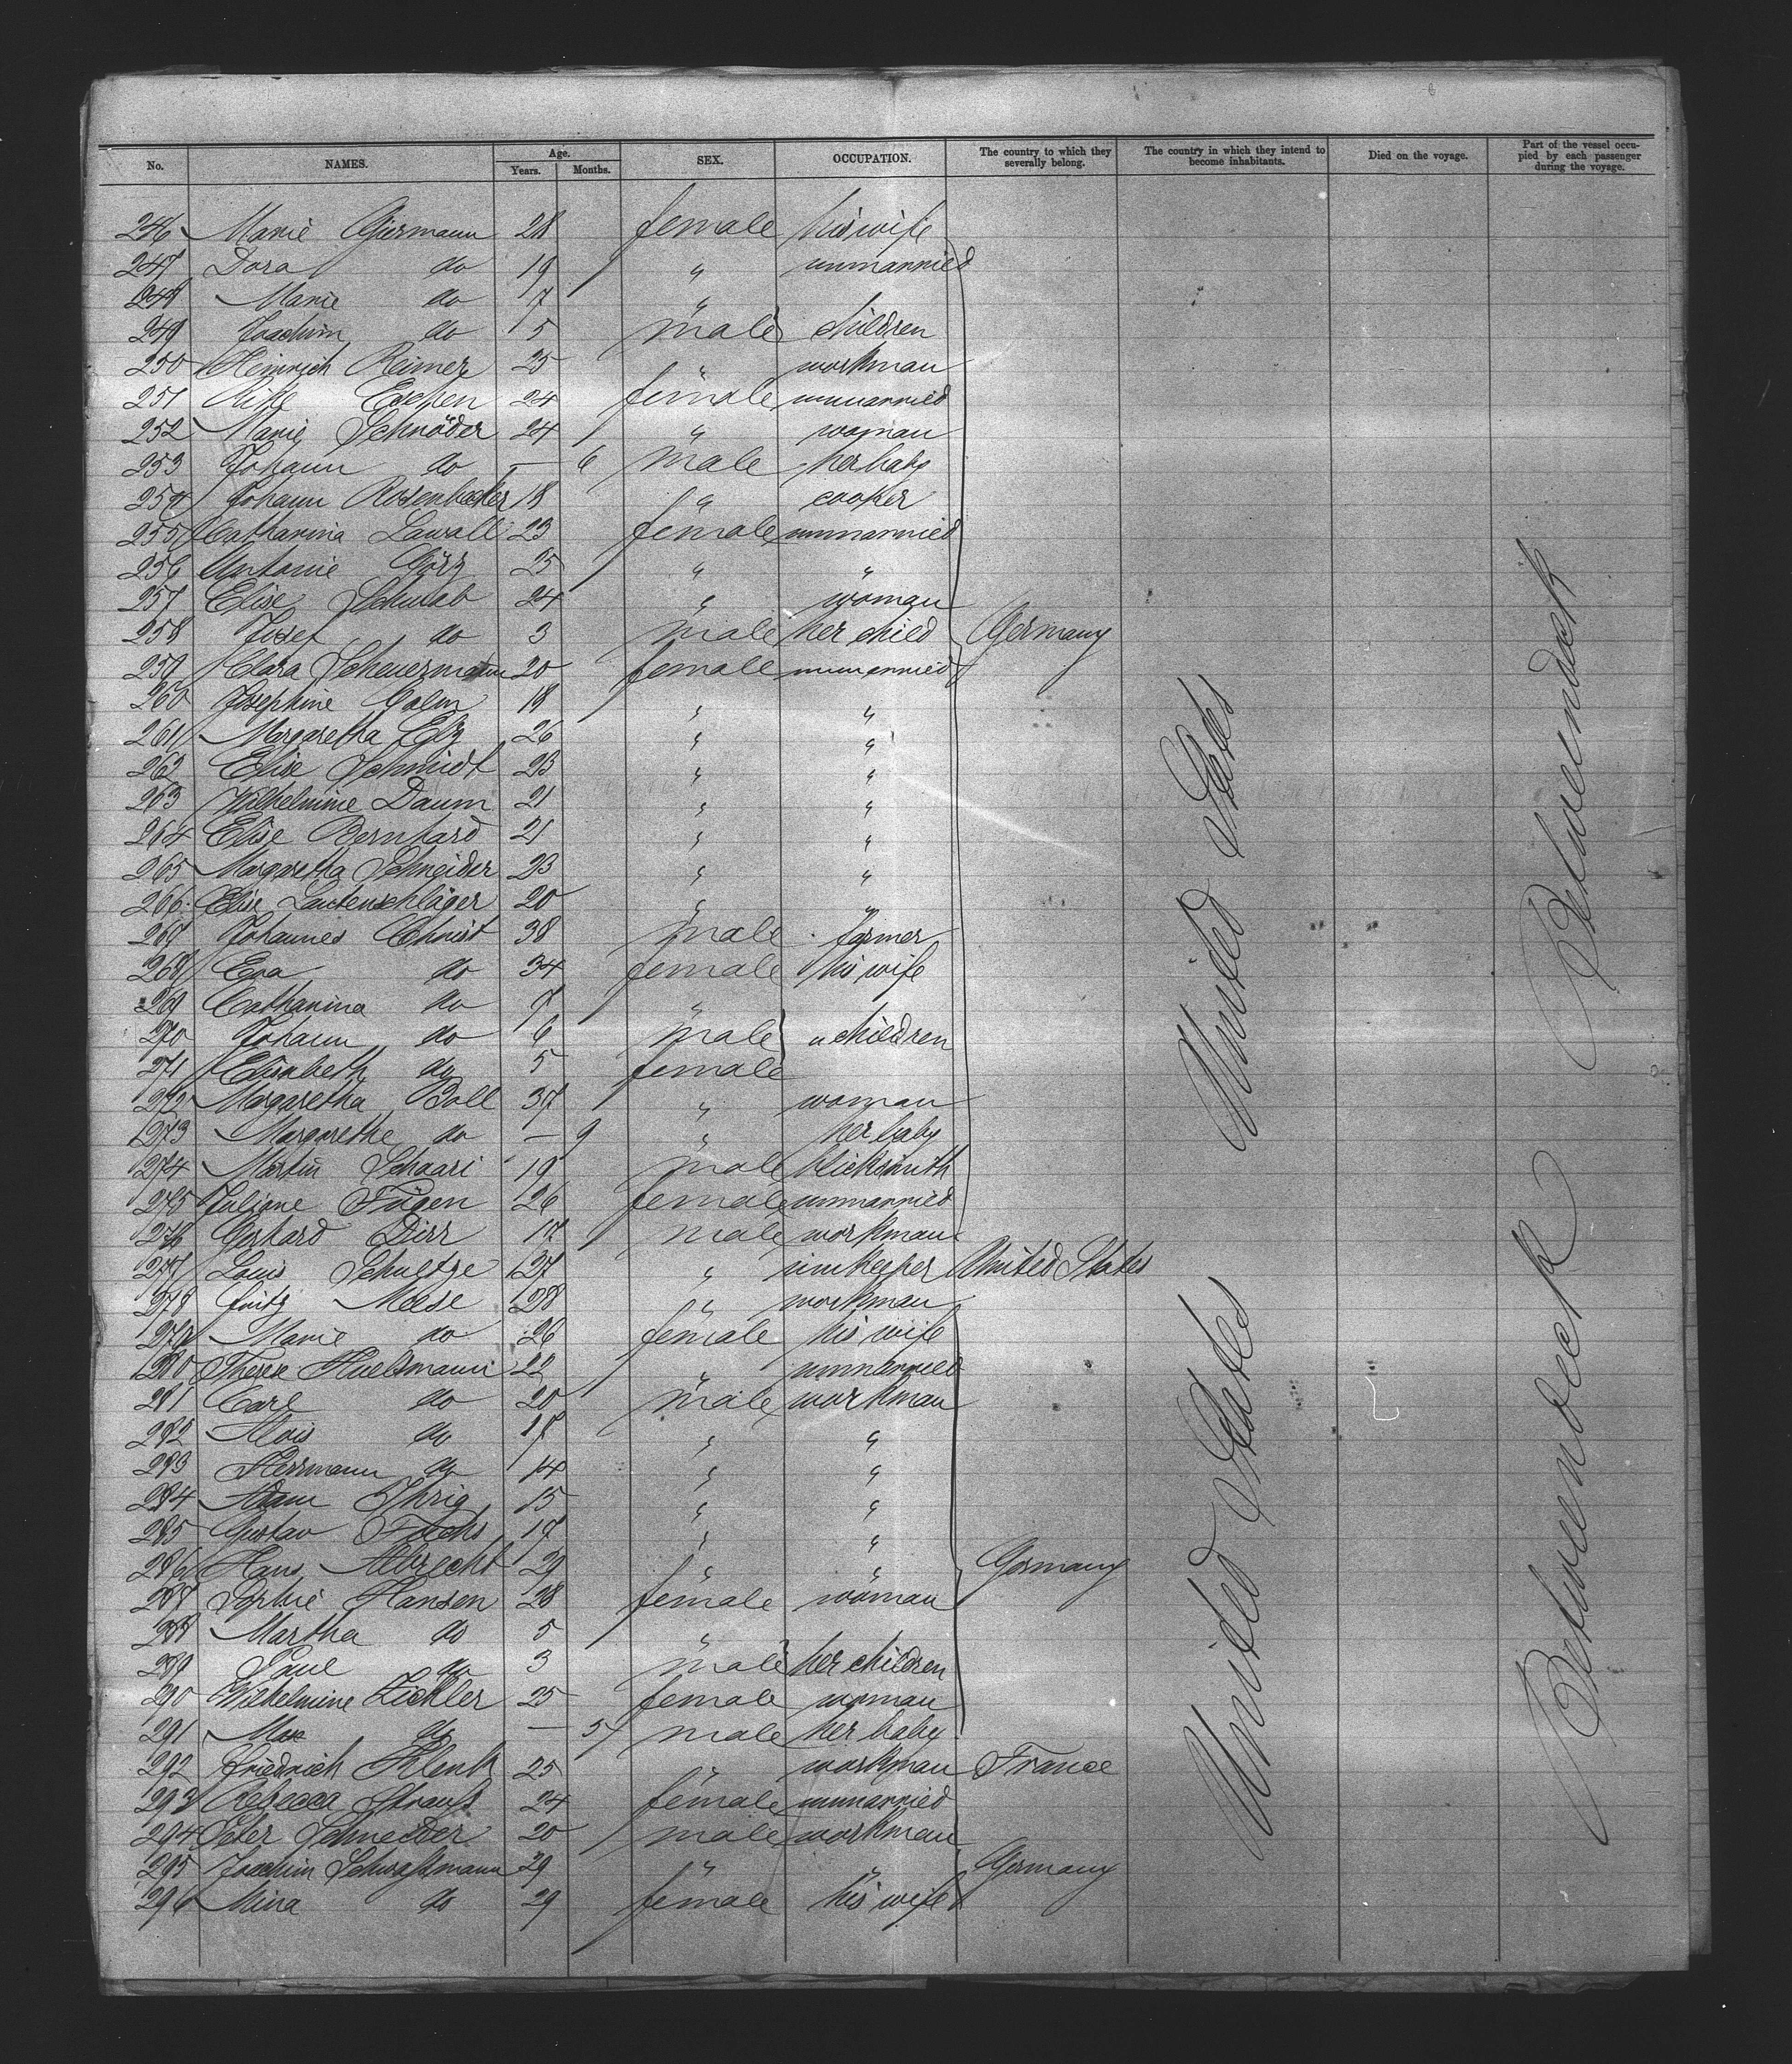 No. NAMES. Age. Years. Months. SEX. OCCUPATION. The country to which they severally belong. The country in which they intend to become inhabitants. Died on the voyage. Part of the vessel occupied by each passenger during the voyage.
246 Marie 28 female his wife
247 Dora do 19 " unmarried
248 Marie do 7 "
249 Joachim do 5 male children
250 Heinrich Reimer 25 " workman
251 Rike Eschen 24 female unmarried
252 Marie Schröder 24 " woman
253 Johann do — 6 male her baby
254 Johann Rosenbecker 18 " cooker
255 Catharina Lawall 23 female unmarried
256 Antonie Görz 25 " "
257 Elise Schwab 24 " woman
258 Josef do 3 male her child Germany
259 Clara Scheuermann 20 female unmarried
260 Josephine 18 " "
261 Margaretha Elz 26 " "
262 Elise Schmidt 23 " "
263 Wilhelmine Daum 21 " "
264 Elise Bernhard 21 " "
265 Margaretha Schneider 23 " "
266 Elise Lautenschläger 20 " "
267 Johannes Christ 38 male farmer
268 Eva do 34 female his wife
269 Catharina do 7 "
270 Johann do 6 male " children
271 Elisabeth do 5 female
272 Margaretha Boll 37 " woman
273 Margarethe do — 9 " her baby
274 Martin Schaari 19 male blicksmith
275 Juliane Fügen 26 female unmarried
276 Gerhard Dirr 17 male workman
277 Louis Schultze 27 " innkeeper United States
278 Fritz Meese 28 " workman
279 Marie do 26 female his wife
280 Therese Hueltmann 22 " unmarried
281 Carl do 20 male workman
282 Alois do 17 " "
283 Herrmann do 14 " "
284 Adam Ihrig 15 " "
285 Gustav Fuchs 17 " "
286 Hans Albrecht 29 " " Germany
287 Sophie Hansen 28 female woman
288 Martha do 5 "
289 Paul do 3 male her children
290 Wilhelmine Zickler 25 female woman
291 Max do — 5 male her baby
292 Friedrich Klenk 25 " workman France
293 Rebecca Strauß 24 female unmarried
294 Peter Schneider 20 male workman
295 Joachim Schwaßmann 29 " " Germany
296 Mina do 29 female his wife
United States
United States
Betweendeck
Betweendeck